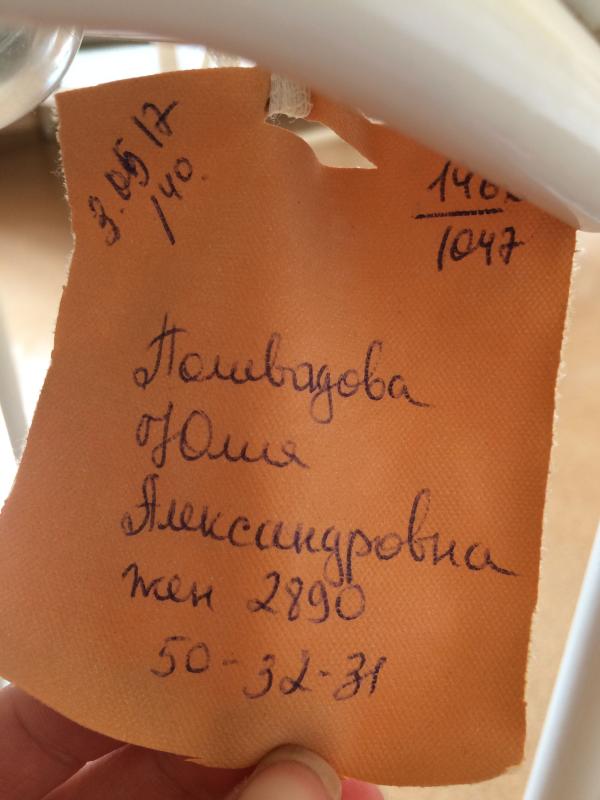 3.05 17
140.
1047
Поливадова
Юлия
Александровна
жен 2890
50-32-31